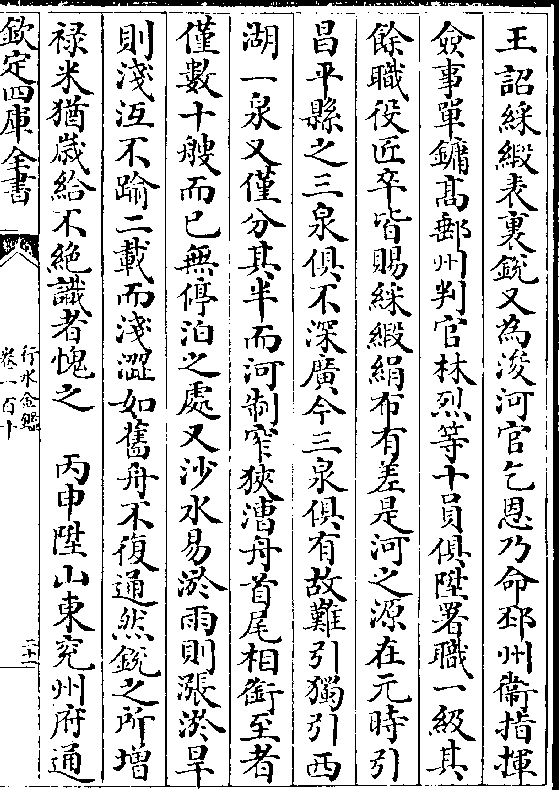 王詔綵緞表裏銳又為浚河官乞恩乃命邳州衞指揮
僉事單鏞高郵州判官林烈等十員俱陞署職一級其
餘職役匠卒皆賜綵緞絹布有差是河之源在元時引
昌平縣之三泉俱不深廣今三泉俱有故難引獨引西
湖一泉又僅分其半而河制窄狹漕舟首尾相銜至者
僅數十艘而已無停泊之處又沙水易淤雨則漲淤旱
則淺沍不踰二載而淺澀如舊舟不復通然銳之所增
祿米猶歲給不絕識者愧之　丙申陞山東兖州府通
欽定四庫全書
行水金鑑
卷一百十
二十一